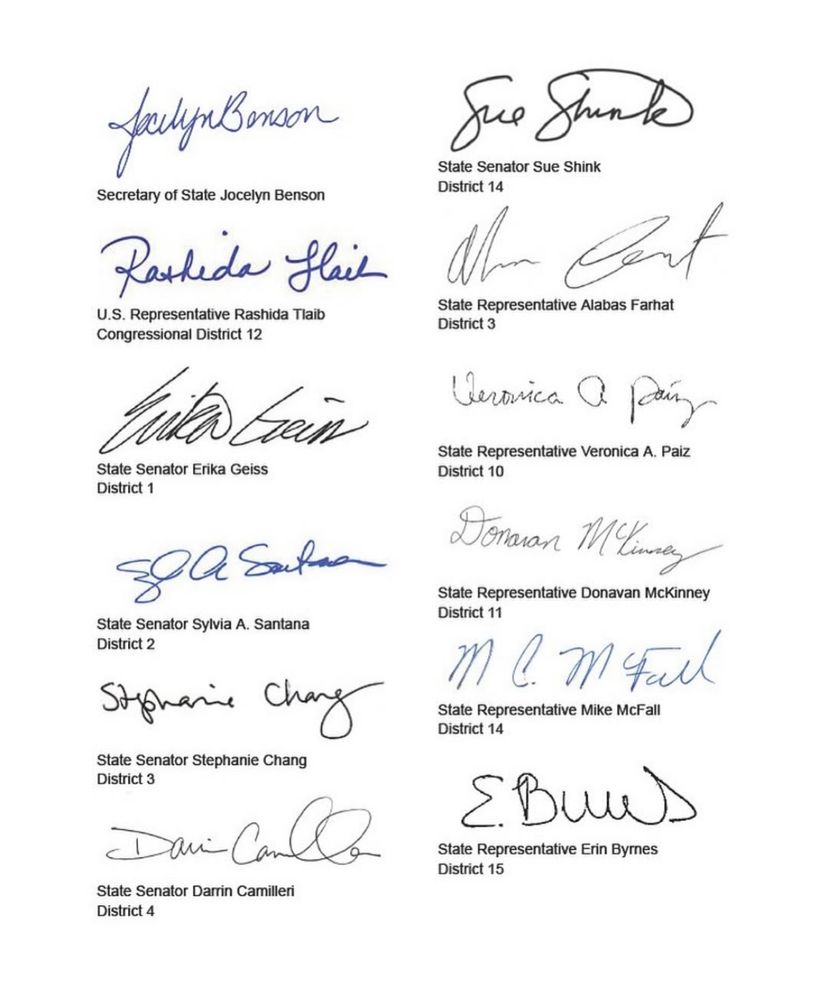 Jocelyn Benson
Secretary of State Jocelyn Benson
Rashida Tlaib
U.S. Representative Rashida Tlaib
Congressional District 12
Erika Geiss
State Senator Erika Geiss
District 1
A Santana
State Senator Sylvia A. Santana
District 2
Stephanie Chang
State Senator Stephanie Chang
District 3
Darrin Camilleri
State Senator Darrin Camilleri
District 4
Sue Shink
State Senator Sue Shink
District 14
State Representative Alabas Farhat
District 3
Veronica A Paiz
State Representative Veronica A. Paiz
District 10
Donavan McKinney
State Representative Donavan McKinney
District 11
M C. McFall
State Representative Mike McFall
District 14
E. Byrnes
State Representative Erin Byrnes
District 15